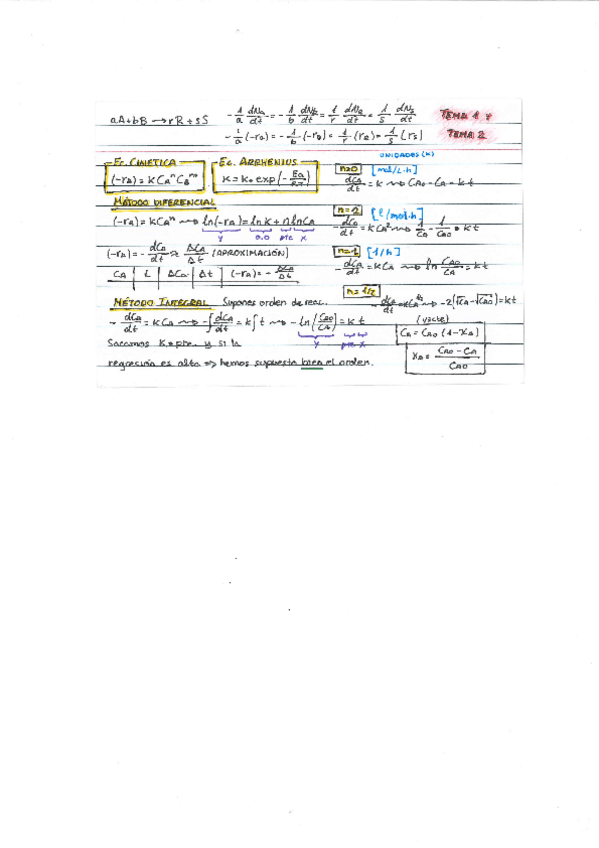 aA+bB → rR + sS
-1/a dNA/dt = -1/b dNB/dt = 1/r dNR/dt = 1/s dNS/dt
TEMA 1 y
-1/a (-rA) = -1/b (-rB) = 1/r (rR) = 1/s (rS)
TEMA 2
UNIDADES (K)
Ec. CINÉTICA
(-rA) = K CA^n CB^m
Ec. ARRHENIUS
K = K0 exp(-Ea/RT)
n=0 [mol/L·h]
dCA/dt = K ⇝ CA0 - CA = K t
MÉTODO DIFERENCIAL
(-rA) = K CA^n ⇝ ln(-rA) = ln K + n ln CA
y o.o pte x
n=2 [l/mol·h]
-dCA/dt = K CA² ⇝ 1/CA - 1/CA0 = K t
(-rA) = -dCA/dt ≈ ΔCA/Δt (APROXIMACIÓN)
n=1 [1/h]
-dCA/dt = K CA ⇝ ln CA0/CA = K t
CA | t | ΔCA | Δt | (-rA) = -ΔCA/Δt
n=1/2
-dCA/dt = K CA^1/2 ⇝ -2(√CA - √CA0) = K t
MÉTODO INTEGRAL Supones orden de reac.
-dCA/dt = K CA ⇝ -∫dCA/dt = K∫t ⇝ -ln(CA0/CA) = K t
y pte x
(vcte)
CA = CA0 (1-XA)
XA = CA0 - CA / CA0
Sacamos K=pte. y si la
regresión es alta ⇒ hemos supuesto bien el orden.